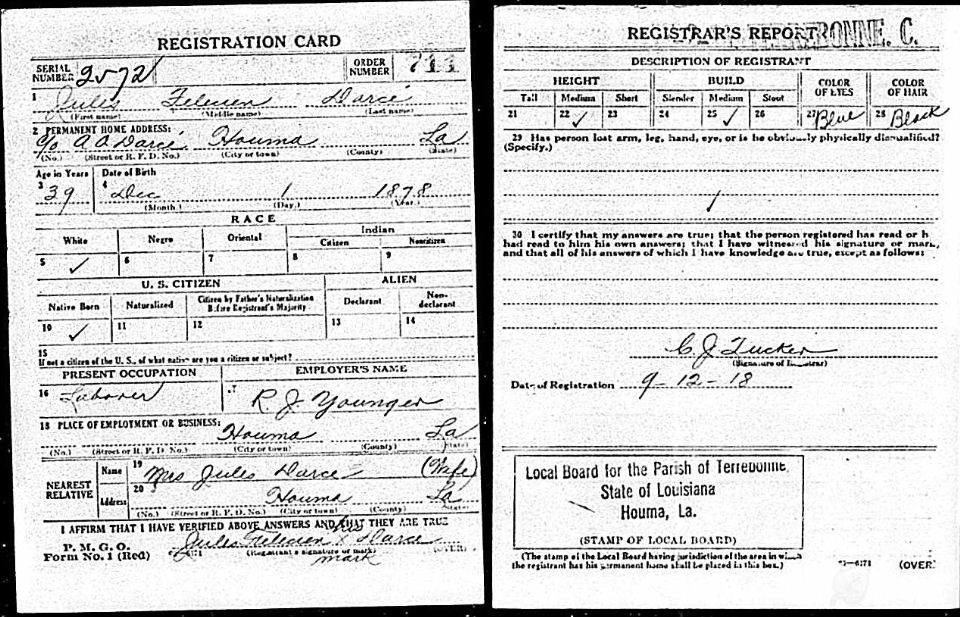 REGISTRATION CARD
SERIAL NUMBER 2572 ORDER NUMBER
1 Jules Darcé
(First name) (Middle name) (Last name)
2 PERMANENT HOME ADDRESS:
c/o A A Darcé Houma La
(No.) (Street or R. F. D. No.) (City or town) (County) (State)
Age in Years Date of Birth
3 39 4 Dec 1 1878
(Month.) (Day.) (Year.)
RACE
White Negro Oriental Indian
Citizen Noncitizen
5 ✓ 6 7 8 9
U. S. CITIZEN ALIEN
Native Born Naturalized Citizen by Father's Naturalization Before Registrant's Majority Declarant Non-declarant
10 ✓ 11 12 13 14
15
If not a citizen of the U. S., of what nation are you a citizen or subject?
PRESENT OCCUPATION EMPLOYER'S NAME
16 Laborer 17 R. J. Younger
18 PLACE OF EMPLOYMENT OR BUSINESS:
Houma La
(No.) (Street or R. F. D. No.) (City or town) (County) (State)
NEAREST RELATIVE
Name 19 Mrs Jules Darce (Wife)
Address 20 Houma La
(No.) (Street or R. F. D. No.) (City or town) (County) (State)
I AFFIRM THAT I HAVE VERIFIED ABOVE ANSWERS AND THAT THEY ARE TRUE
his
P. M. G. O.
Form No. 1 (Red) Jules X Darce
(Registrant's signature or mark) (OVER)
mark
REGISTRAR'S REPORT
DESCRIPTION OF REGISTRANT
HEIGHT BUILD COLOR OF EYES COLOR OF HAIR
Tall Medium Short Slender Medium Stout
21 22 ✓ 23 24 25 ✓ 26 27 Blue 28 Black
29 Has person lost arm, leg, hand, eye, or is he obviously physically disqualified?
(Specify.)
30 I certify that my answers are true; that the person registered has read or h
had read to him his own answers; that I have witnessed his signature or mark,
and that all of his answers of which I have knowledge are true, except as follows:
C. J. Tucker
(Signature of Registrar)
Date of Registration 9-12-18
Local Board for the Parish of Terrebonne,
State of Louisiana
Houma, La.
(STAMP OF LOCAL BOARD)
(The stamp of the Local Board having jurisdiction of the area in which
the registrant has his permanent home shall be placed in this box.)
3—6171 (OVER)